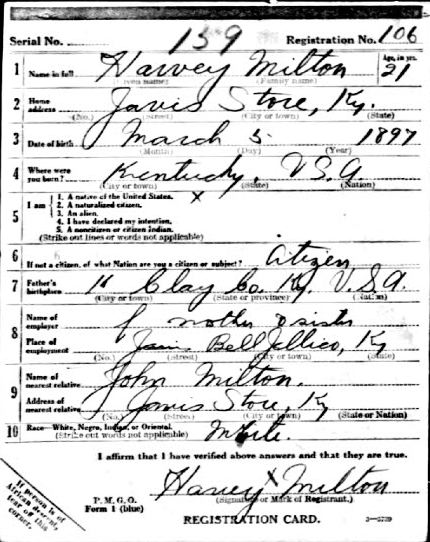 Serial No. 159 Registration No. 106
1 Name in full Harvey Milton Age, in yrs. 21
(Given name) (Family name)
2 Home address Jarvis Store, Ky.
(No.) (Street) (City or town) (State)
3 Date of birth March 5 1897
(Month) (Day) (Year)
4 Where were you born? Kentucky, USA
(City or town) (State) (Nation)
5 I am
1. A native of the United States. x
2. A naturalized citizen.
3. An alien.
4. I have declared my intention.
5. A noncitizen or citizen Indian.
(Strike out lines or words not applicable)
6 If not a citizen, of what Nation are you a citizen or subject? Citizen
7 Father's birthplace Clay Co. Ky. USA.
(City or town) (State or province) (Nation)
8 Name of employer mother & sister
Place of employment Bell Jellico, Ky
(No.) (Street) (City or town) (State)
9 Name of nearest relative John Milton.
Address of nearest relative Jarvis Store, Ky
(No.) (Street) (City or town) (State or Nation)
10 Race—White, Negro, Indian, or Oriental. White.
(Strike out words not applicable)
I affirm that I have verified above answers and that they are true.
Harvey x Milton
P. M. G. O. (Signature or Mark of Registrant.)
Form 1 (blue)
REGISTRATION CARD. 3—5729
If person is of
African descent,
tear off this
corner.